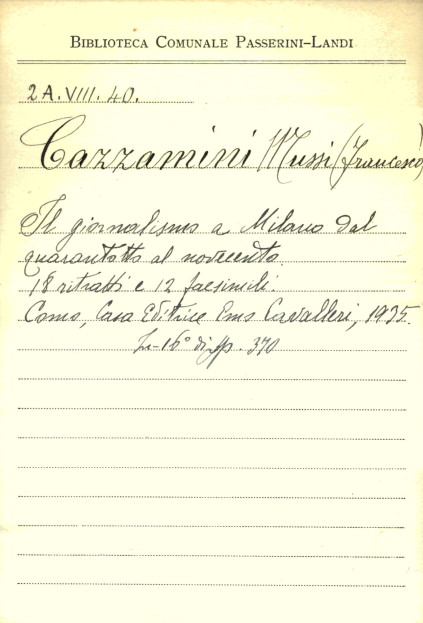 BIBLIOTECA COMUNALE PASSERINI-LANDI
2A.VIII.40.
Cazzamini Mussi (Francesco)
Il giornalismo a Milano dal
quarantotto al novecento.
18 ritratti e 12 facsimili.
Como, Casa Editrice Emo Cavalleri, 1935.
In-16° di pp. 370